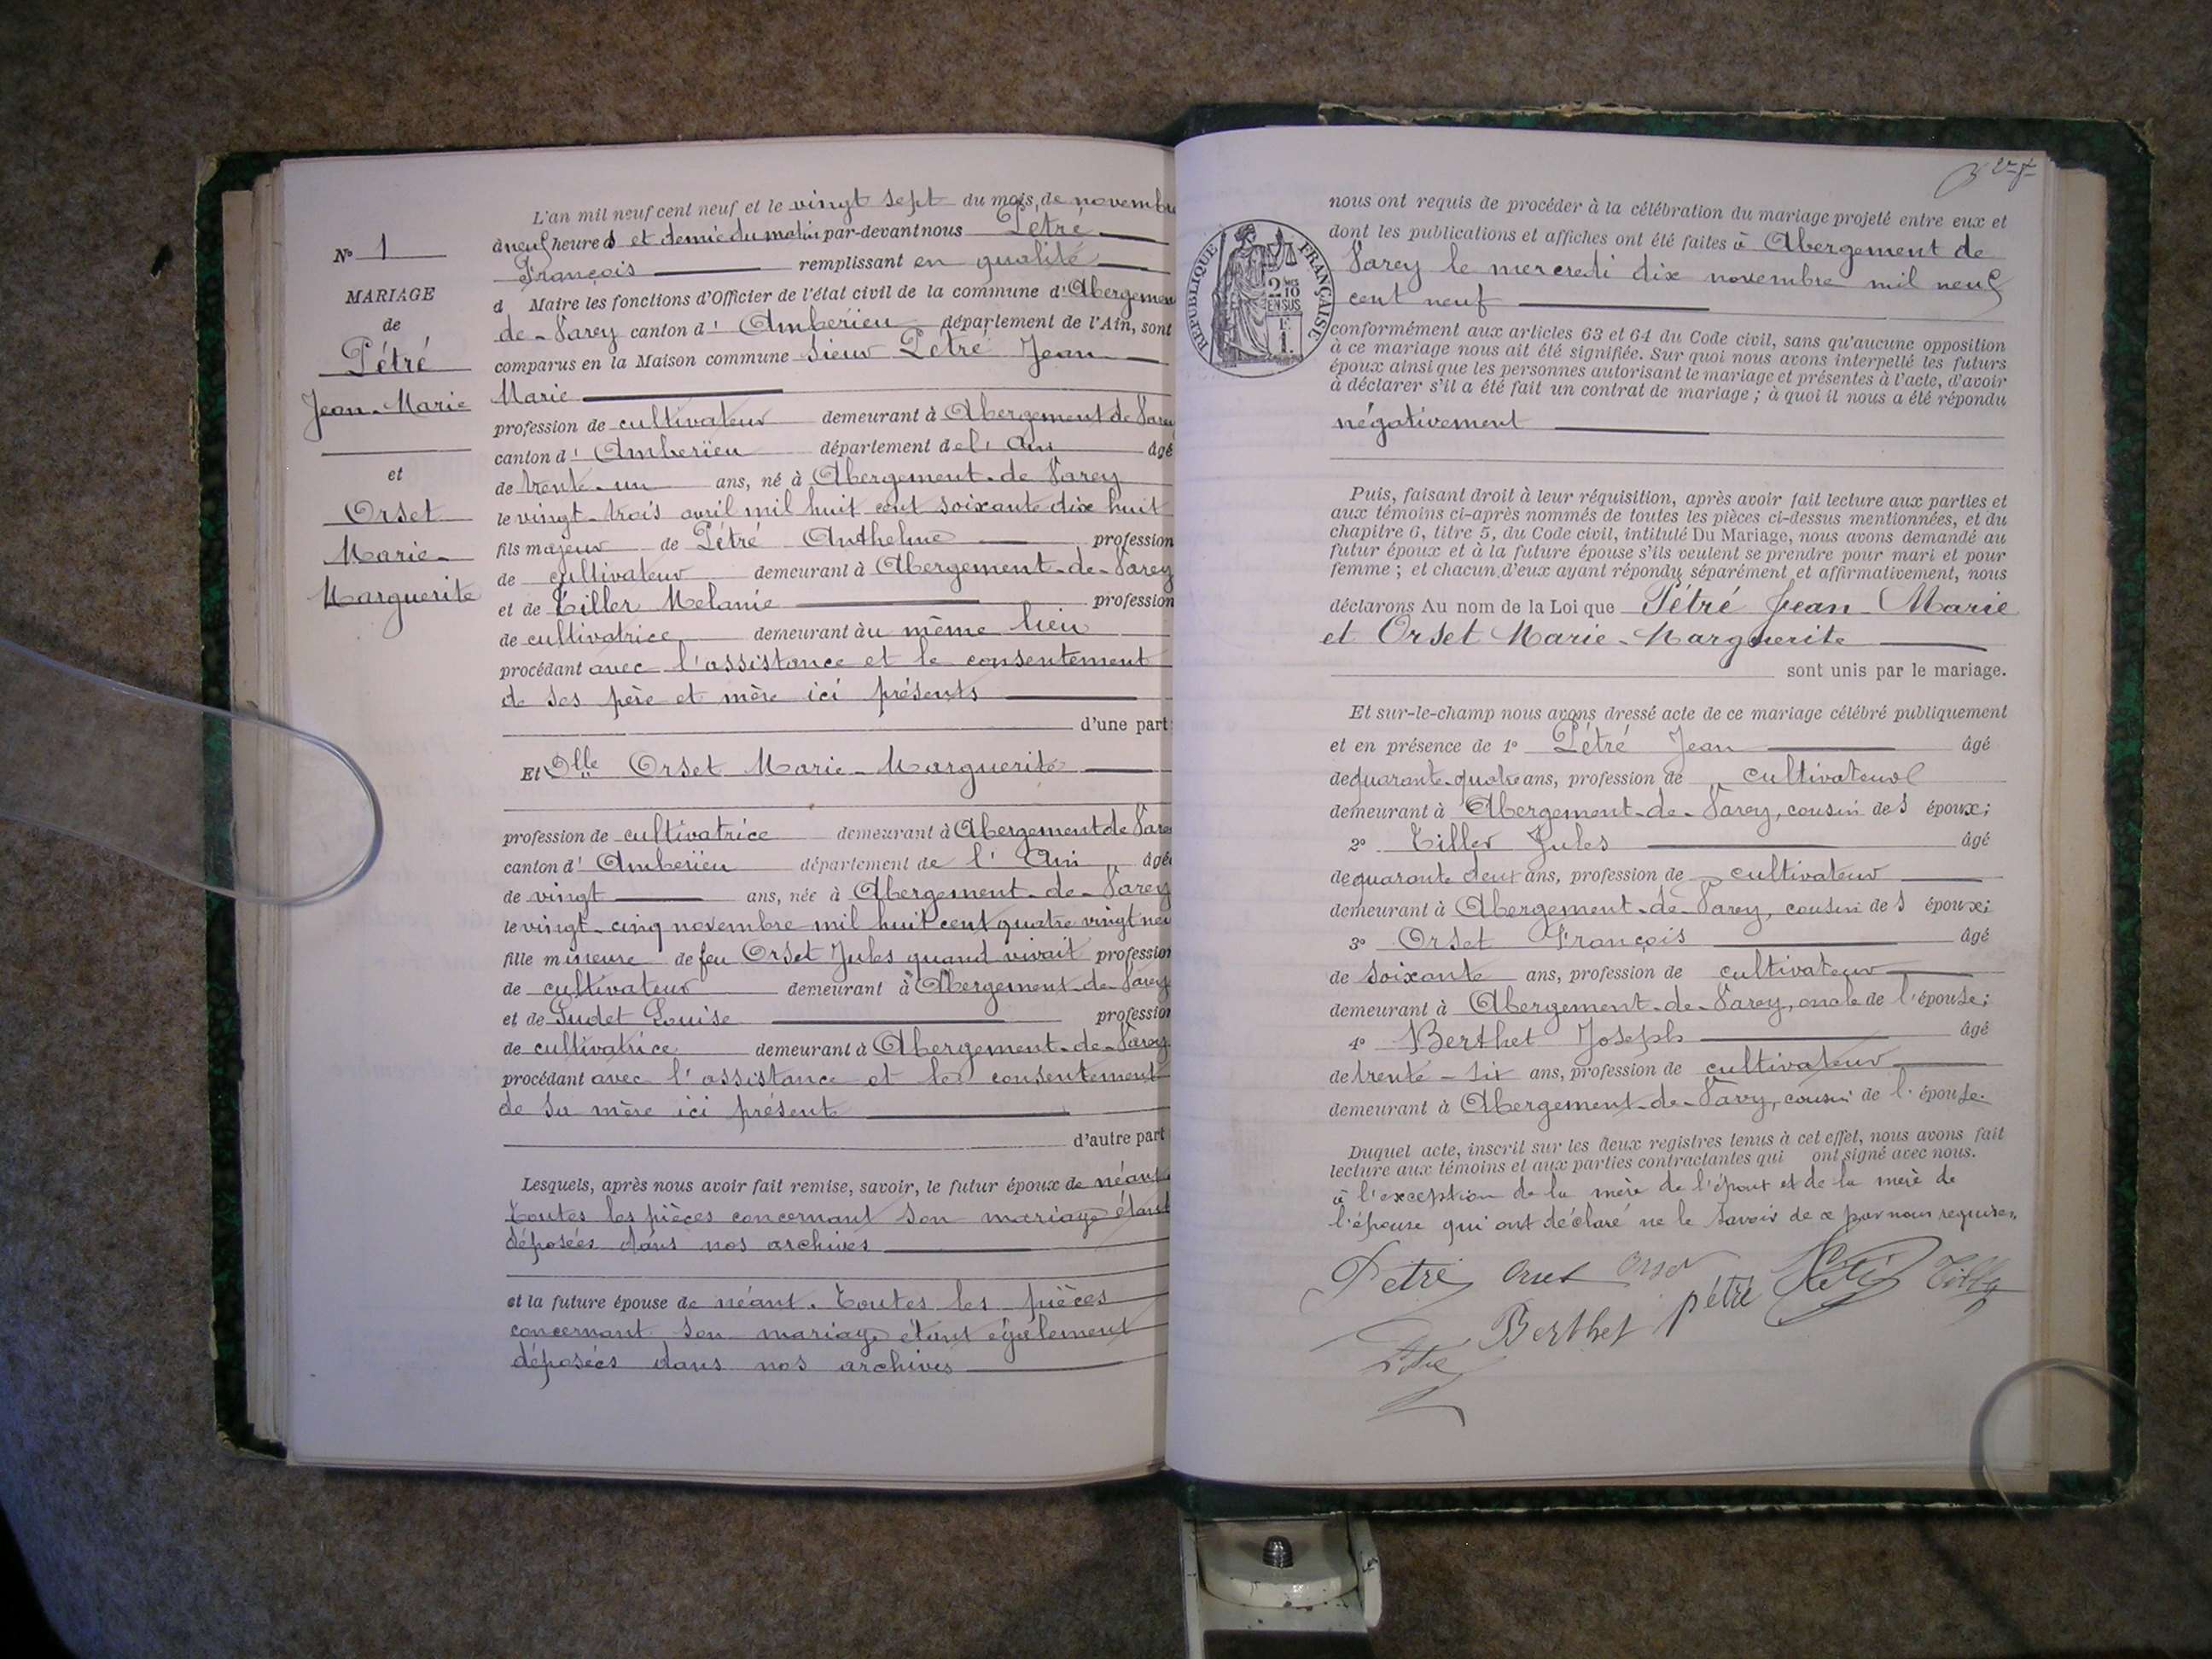 N° 1
MARIAGE
de
Pétré
Jean-Marie
et
Orset
Marie-
Marguerite
L'an mil neuf cent neuf et le vingt sept du mois de novembre
à neuf heures et demie du matin par-devant nous Pétré
François remplissant en qualité
d Maire les fonctions d'Officier de l'état civil de la commune d'Abergemen
de-Varey canton d'Amberieu département de l'Ain, sont
comparus en la Maison commune Sieur Pétré Jean
Marie
profession de cultivateur demeurant à Abergement de Varey
canton d'Amberieu département de l'Ain âgé
de trente-un ans, né à Abergement-de Varey
le vingt-trois avril mil huit cent soixante dix huit
fils majeur de Pétré Anthelme profession
de cultivateur demeurant à Abergement-de-Varey
et de Tiller Melanie profession
de cultivatrice demeurant au même lieu
procédant avec l'assistance et le consentement
de ses père et mère ici présents
d'une part
Et Dlle Orset Marie-Marguerite
profession de cultivatrice demeurant à Abergement de Vare
canton d'Amberieu département de l'Ain âgée
de vingt ans, née à Abergement-de-Varey
le vingt-cinq novembre mil huit cent quatre vingt neu
fille mineure de feu Orset Jules quand vivait profession
de cultivateur demeurant à Abergement-de-Varey
et de Gudet Louise profession
de cultivatrice demeurant à Abergement-de-Varey
procédant avec l'assistance et le consentement
de sa mère ici présente
d'autre part
Lesquels, après nous avoir fait remise, savoir, le futur époux de néant
toutes les pièces concernant son mariage étant
déposées dans nos archives
et la future épouse de néant. Toutes les pièces
concernant son mariage étant également
déposées dans nos archives
RÉPUBLIQUE FRANÇAISE
2 MES 10
EN SUS
F.
1.
nous ont requis de procéder à la célébration du mariage projeté entre eux et
dont les publications et affiches ont été faites à Abergement de
Varey le mercredi dix novembre mil neuf
cent neuf
conformément aux articles 63 et 64 du Code civil, sans qu'aucune opposition
à ce mariage nous ait été signifiée. Sur quoi nous avons interpellé les futurs
époux ainsi que les personnes autorisant le mariage et présentes à l'acte, d'avoir
à déclarer s'il a été fait un contrat de mariage ; à quoi il nous a été répondu
négativement
Puis, faisant droit à leur réquisition, après avoir fait lecture aux parties et
aux témoins ci-après nommés de toutes les pièces ci-dessus mentionnées, et du
chapitre 6, titre 5, du Code civil, intitulé Du Mariage, nous avons demandé au
futur époux et à la future épouse s'ils veulent se prendre pour mari et pour
femme ; et chacun d'eux ayant répondu séparément et affirmativement, nous
déclarons Au nom de la Loi que Pétré Jean-Marie
et Orset Marie-Marguerite
sont unis par le mariage.
Et sur-le-champ nous avons dressé acte de ce mariage célébré publiquement
et en présence de 1° Pétré Jean âgé
de quarante-quatre ans, profession de cultivateur
demeurant à Abergement-de-Varey, cousin des époux;
2° Tiller Jules âgé
de quarante deux ans, profession de cultivateur
demeurant à Abergement-de-Varey, cousin des époux;
3° Orset François âgé
de soixante ans, profession de cultivateur
demeurant à Abergement-de-Varey, oncle de l'épouse;
4° Berthet Joseph âgé
de trente-six ans, profession de cultivateur
demeurant à Abergement-de-Varey, cousin de l'épouse.
Duquel acte, inscrit sur les deux registres tenus à cet effet, nous avons fait
lecture aux témoins et aux parties contractantes qui ont signé avec nous.
à l'exception de la mère de l'époux et de la mère de
l'épouse qui ont déclaré ne le savoir de ce par nous requises.
Petré Orset Orset
Berthet pétré
Pétré